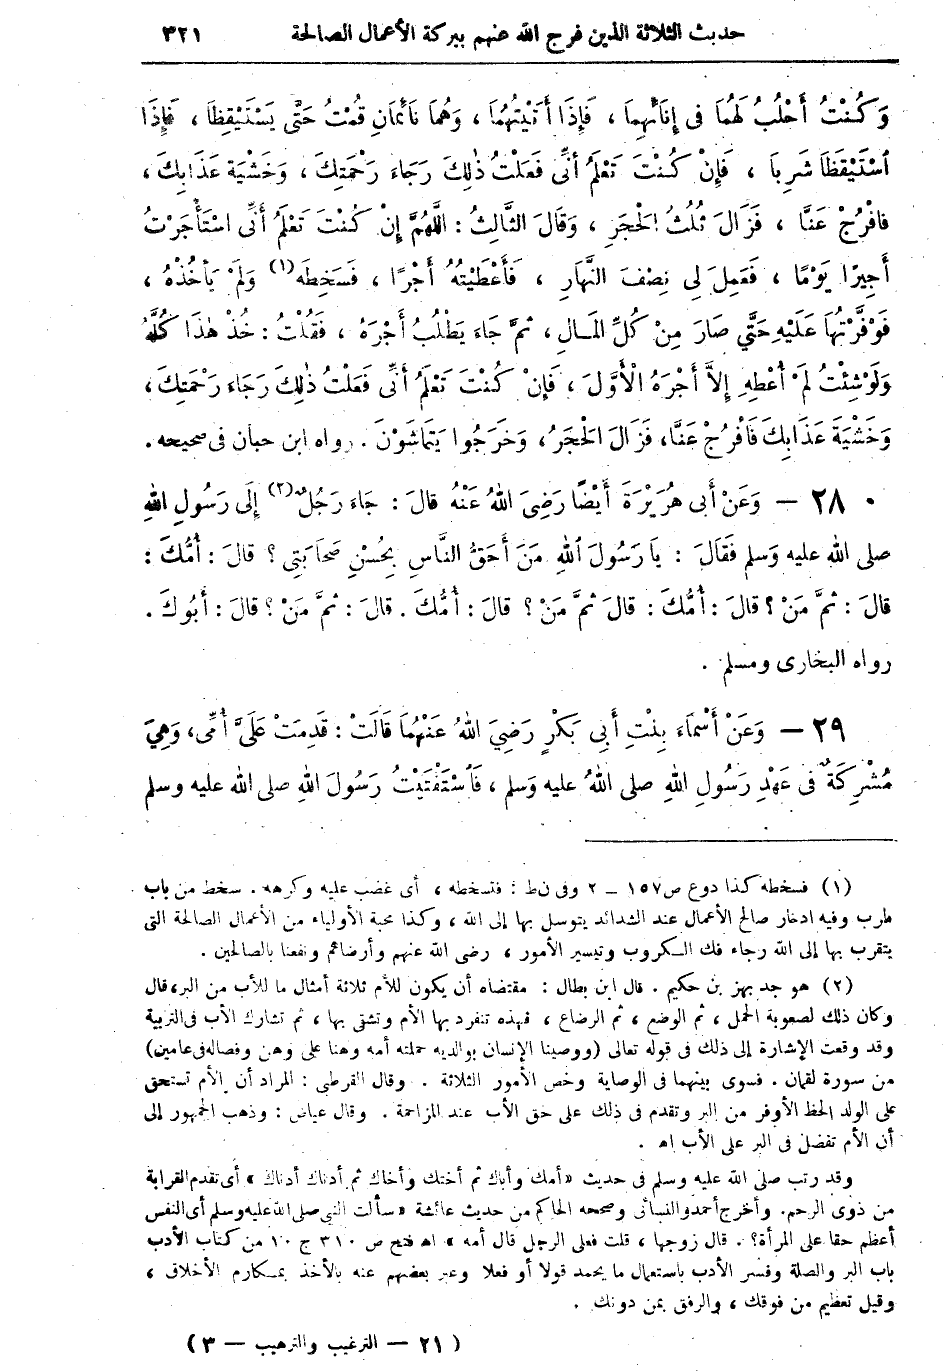 حديث الثلاثة الذين فرج الله عنهم ببركة الأعمال الصالحة ٣٢١
وَكُنْتُ أَحْلُبُ لَهُمَا فِى إِنَائِهِمَا ، فَإِذَا أَتَيْتُهُمَا ، وَهُمَا نَائِمَانِ قُمْتُ حَتَّى يَسْتَيْقِظَا ، فَإِذَا
اسْتَيْقَظَا شَرِبَا ، فَإِنْ كُنْتَ تَعْلَمُ أَنِّى فَعَلْتُ ذٰلِكَ رَجَاءَ رَحْمَتِكَ ، وَخَشْيَةَ عَذَابِكَ ،
فَافْرُجْ عَنَّا ، فَزَالَ ثُلُثُ الْحَجَرِ ، وَقَالَ الثَّالِثُ : اللَّهُمَّ إِنْ كُنْتَ تَعْلَمُ أَنِّى اسْتَأْجَرْتُ
أَجِيرًا يَوْمًا ، فَعَمِلَ لِى نِصْفَ النَّهَارِ ، فَأَعْطَيْتُهُ أَجْرًا ، فَسَخِطَه (١) وَلَمْ يَأْخُذْهُ ،
فَوَفَّرْتُهَا عَلَيْهِ حَتَّى صَارَ مِنْ كُلِّ الْمَالِ ، ثُمَّ جَاءَ يَطْلُبُ أَجْرَهُ ، فَقُلْتُ : خُذْ هٰذَا كُلَّهُ
وَلَوْ شِئْتُ لَمْ أُعْطِهِ إِلاَّ أَجْرَهُ الْأَوَّلَ ، فَإِنْ كُنْتَ تَعْلَمُ أَنِّى فَعَلْتُ ذٰلِكَ رَجَاءَ رَحْمَتِكَ ،
وَخَشْيَةَ عَذَابِكَ فَافْرُجْ عَنَّا ، فَزَالَ الْحَجَرُ ، وَخَرَجُوا يَتَمَاشَوْنَ . رواه ابن حبان فى صحيحه .
٢٨ — وَعَنْ أَبِى هُرَيْرَةَ أَيْضًا رَضِىَ اللهُ عَنْهُ قَالَ : جَاءَ رَجُلٌ (٢) إِلَى رَسُولِ اللهِ
صلى الله عليه وسلم فَقَالَ : يَا رَسُولَ اللهِ مَنَ أَحَقُّ النَّاسِ بِحُسْنِ صَحَابَتِى ؟ قالَ : أُمُّكَ :
قَالَ : ثُمَّ مَنْ ؟ قالَ : أُمُّكَ : قَالَ ثُمَّ مَنْ ؟ قَالَ : أُمُّكَ . قالَ : ثُمَّ مَنْ ؟ قَالَ : أَبُوكَ .
رواه البخارى ومسلم .
٢٩ — وَعَنْ أَسْمَاءَ بِنْتِ أَبِى بَكْرٍ رَضِىَ اللهُ عَنْهُمَا قَالَتْ : قَدِمَتْ عَلَىَّ أُمِّى ، وَهِىَ
مُشْرِكَةٌ فِى عَهْدِ رَسُولِ اللهِ صلى اللهُ عليه وَسلم ، فَاسْتَفْتَيْتُ رَسُولَ اللهِ صلى الله عليه وسلم
(١) فسخطه كذا دوع ص ١٥٧ — ٢ وفى ن ط : فتسخطه ، أى غضب عليه وكرهه . سخط من باب
طرب وفيه ادخار صالح الأعمال عند الشدائد يتوسل بها إلى الله ، وكذا محبة الأولياء من الأعمال الصالحة التى
يتقرب بها إلى الله رجاء فك الكروب وتيسير الأمور ، رضى الله عنهم وأرضاهم ونفعنا بالصالحين .
(٢) هو جد بهز بن حكيم . قال ابن بطال : مقتضاه أن يكون للأم ثلاثة أمثال ما للأب من البر ، قال
وكان ذلك لصعوبة الحمل ، ثم الوضع ، ثم الرضاع ، فهذه تنفرد بها الأم وتشقى بها ، ثم تشارك الأب فى التربية
وقد وقعت الإشارة إلى ذلك فى قوله تعالى (ووصينا الإنسان بوالديه حملته أمه وهنا على وهن وفصاله فى عامين)
من سورة لقمان . فسوى بينهما فى الوصاية وخص الأمور الثلاثة . وقال القرطبى : المراد أن الأم تستحق
على الولد الحظ الأوفر من البر وتقدم فى ذلك على حق الأب عند المزاحمة . وقال عياض : وذهب الجمهور إلى
أن الأم تفضل فى البر على الأب اه .
وقد رتب صلى الله عليه وسلم فى حديث « أمك وأباك ثم أختك وأخاك ثم أدناك أدناك » أى تقدم القرابة
من ذوى الرحم . وأخرج أحمد والنسائى وصححه الحاكم من حديث عائشة « سألت النبى صلى الله عليه وسلم أى النفس
أعظم حقا على المرأة ؟ . قال زوجها ، قلت فعلى الرجل قال أمه » اه فتح ص ٣١٠ ج ١٠ من كتاب الأدب
باب البر والصلة وفسر الأدب باستعمال ما يحمد قولا أو فعلا وعبر بعضهم عنه بالأخذ بمكارم الأخلاق ،
وقيل تعظيم من فوقك ، والرفق بمن دونك .
( ٢١ — الترغيب والترهيب — ٣ )